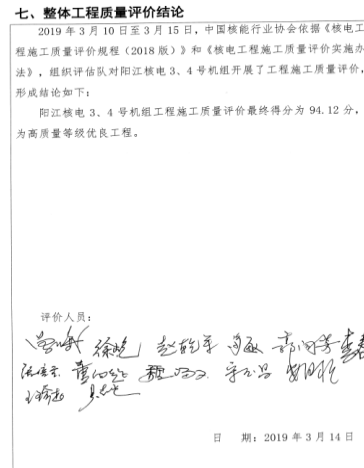 七、整体工程质量评价结论
2019 年 3 月 10 日至 3 月 15 日，中国核能行业协会依据《核电工
程施工质量评价规程（2018 版）》和《核电工程施工质量评价实施办
法》，组织评估队对阳江核电 3、4 号机组开展了工程施工质量评价，
形成结论如下：
阳江核电 3、4 号机组工程施工质量评价最终得分为 94.12 分，
为高质量等级优良工程。
评价人员：
日 期：2019 年 3 月 14 日